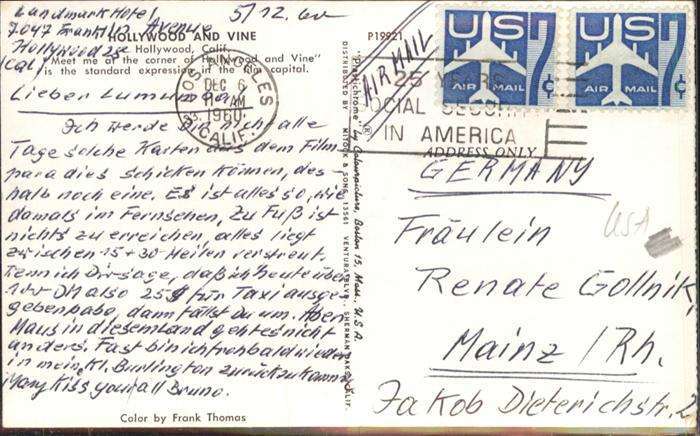 Landmark Hotel
7047 Franklin Avenue
Hollywood 28
Cal.
5/12.60
HOLLYWOOD AND VINE
Hollywood, Calif.
"Meet me at the corner of Hollywood and Vine"
is the standard expression in the film capital.
P19921
Lieber
Ich werde Dir nicht alle
Tage solche Karten aus dem Film
paradies schicken können, des-
halb noch eine. Es ist alles so, wie
damals im Fernsehen, zu Fuß ist
nichts zu erreichen, alles liegt
zwischen 15+30 Meilen verstreut.
Wenn ich Dir sage, daß ich heute über
100 DM also 25$ für Taxi ausge-
geben habe, dann fällst du um. Aber
Maus in diesem Land geht es nicht
anders. Fast bin ich froh bald wieder
in mein Kl. Burlington zurück zu kommen
Many Kiss you all Bruno.
Color by Frank Thomas
"Plastichrome" ® by Colourpicture, Boston 15, Mass., U.S.A.
DISTRIBUTED BY MITOCK & SONS, 13561 VENTURA BLVD., SHERMAN OAKS, CALIF.
LOS ANGELES
DEC 6
AM
1960
CALIF.
AIR MAIL
25 YEARS
SOCIAL SECURITY
IN AMERICA
US 7¢
AIR MAIL
US 7¢
AIR MAIL
ADDRESS ONLY
GERMANY
USA
Fräulein
Renate Gollnik
Mainz / Rh.
Jakob Dieterichstr. 2